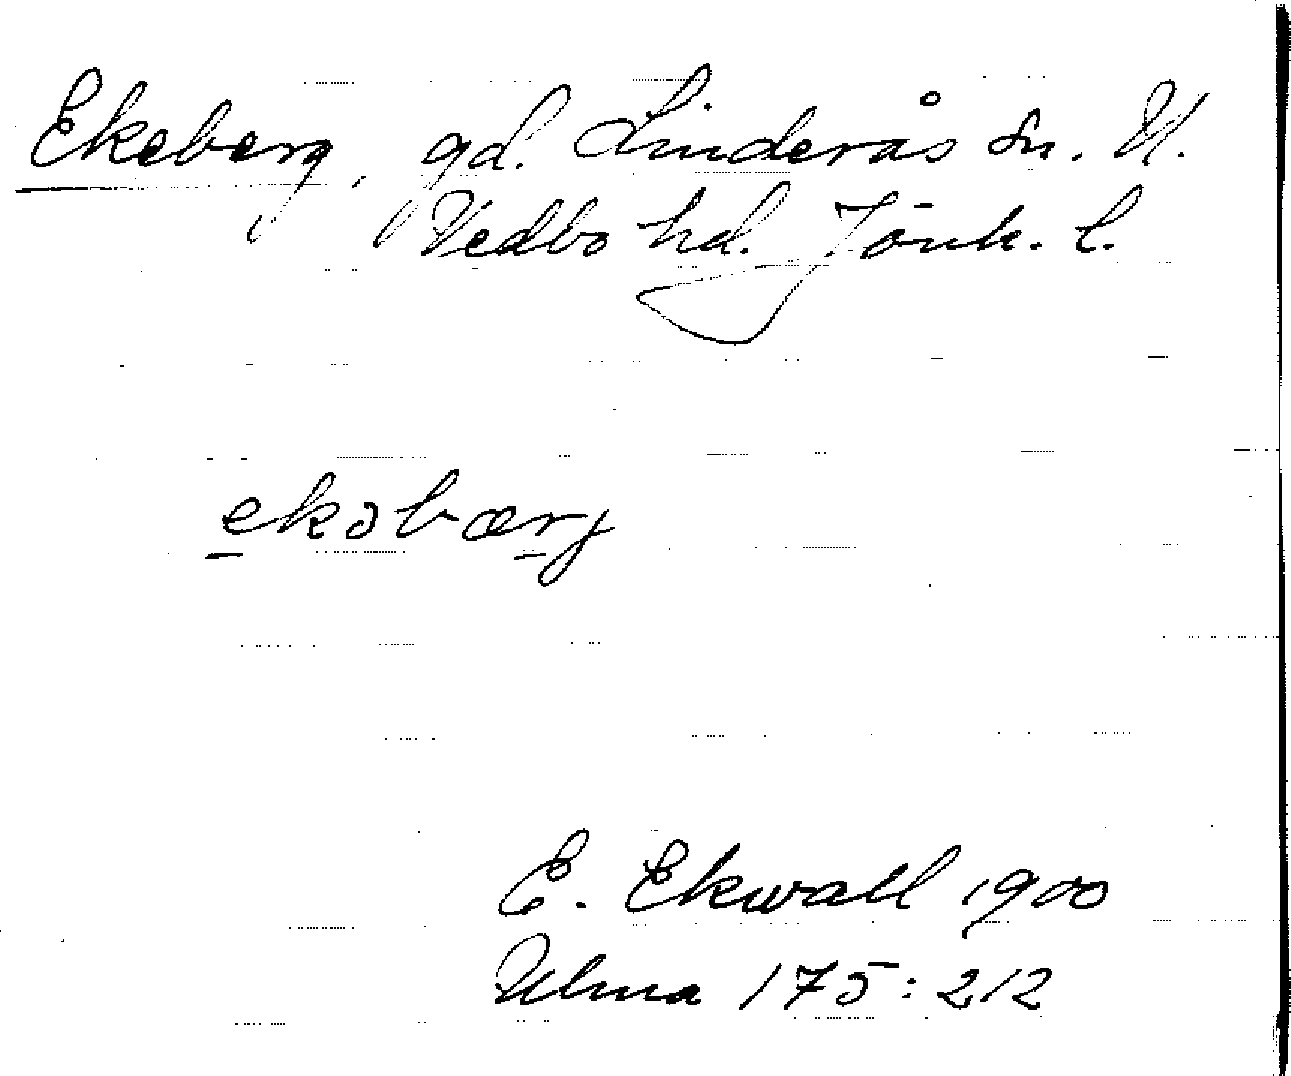 Ekeberg, gd. Linderås sn. N.
Vedbo hd. Jönk. l.
ekəbærj
E. Ekwall 1900
Ulma 175:212